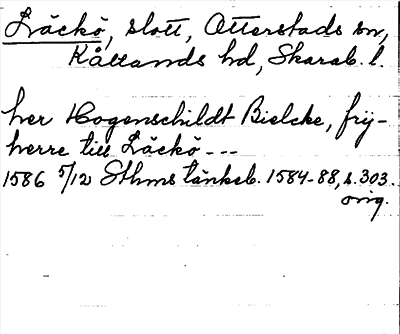 Läckö, slott, Otterstads sn,
Kållands hd, Skarab. l.
her Hogenschildt Bielcke, frij-
herre till Läckö ---
1586 5/12 Sthms tänkeb. 1584-88, s. 303.
orig.